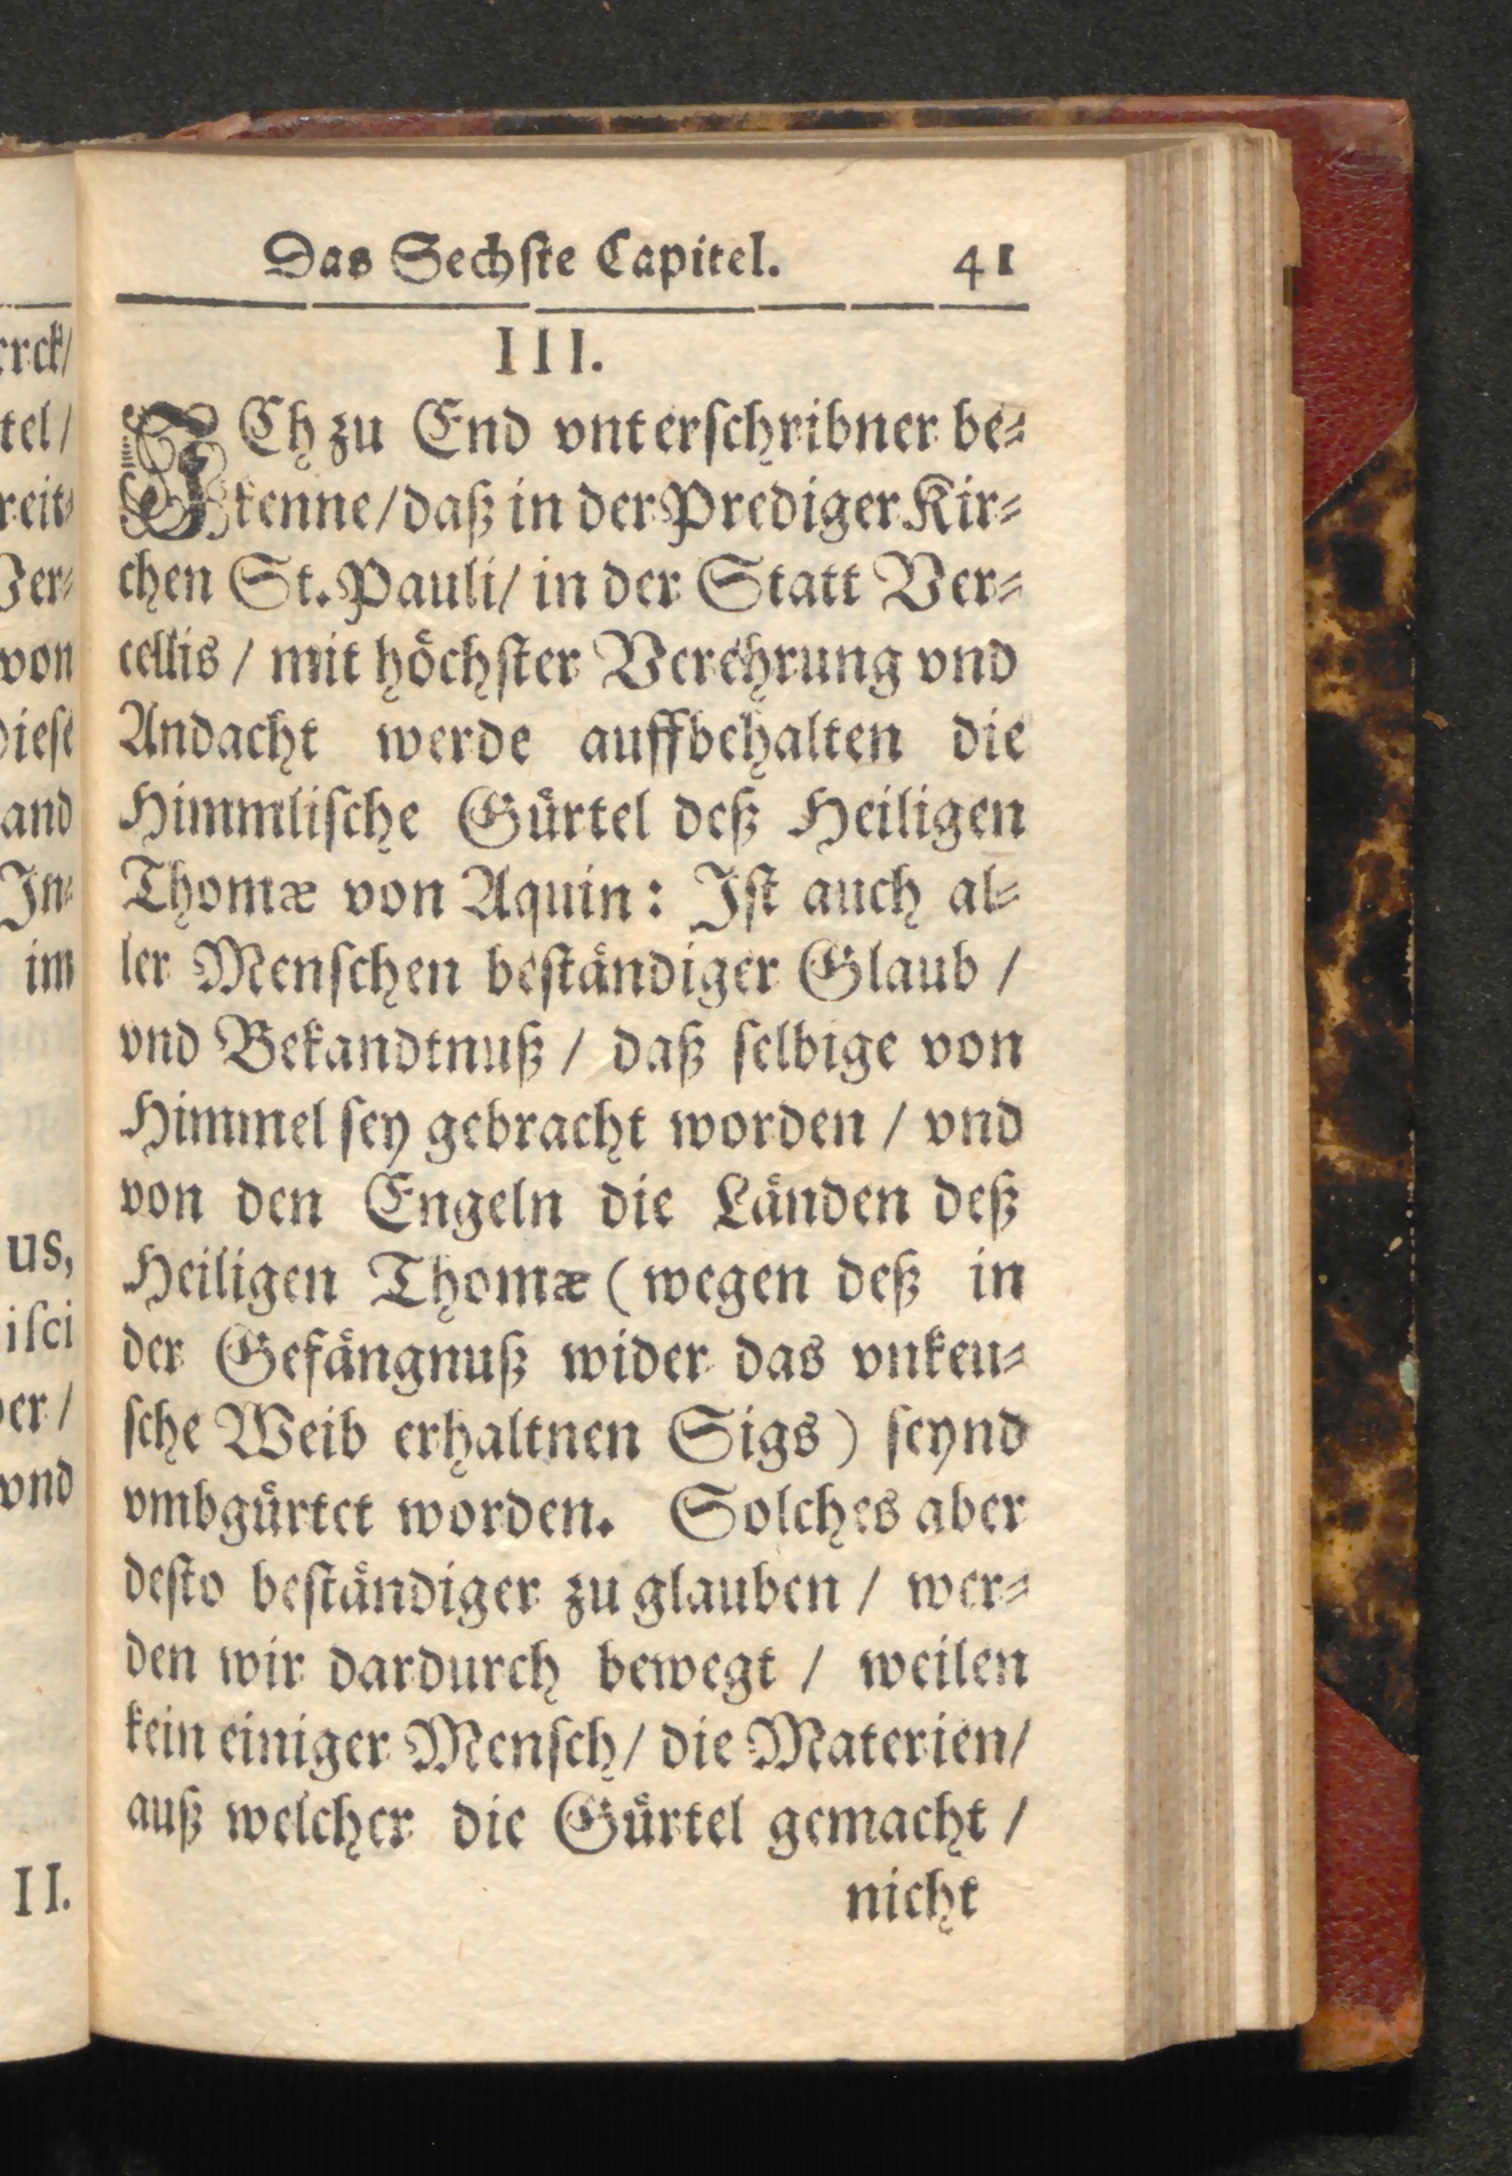 Das Sechste Capitel. 41
III.
ICh zu End vnterschribner be-
kenne/ daß in der Prediger Kir-
chen St. Pauli/ in der Statt Ver-
cellis / mit höchster Verehrung vnd
Andacht werde auffbehalten die
Himmlische Gürtel deß Heiligen
Thomæ von Aquin: Ist auch al-
ler Menschen beständiger Glaub /
vnd Bekandtnuß / daß selbige von
Himmel sey gebracht worden / vnd
von den Engeln die Länden deß
Heiligen Thomæ (wegen deß in
der Gefängnuß wider das vnkeu-
sche Weib erhaltnen Sigs) seynd
vmbgürtet worden. Solches aber
desto beständiger zu glauben / wer-
den wir dardurch bewegt / weilen
kein einiger Mensch/ die Materien/
auß welcher die Gürtel gemacht /
nicht